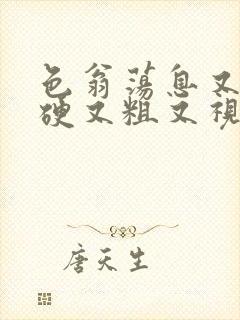 色翁荡息又
硬又粗又视
唐天生